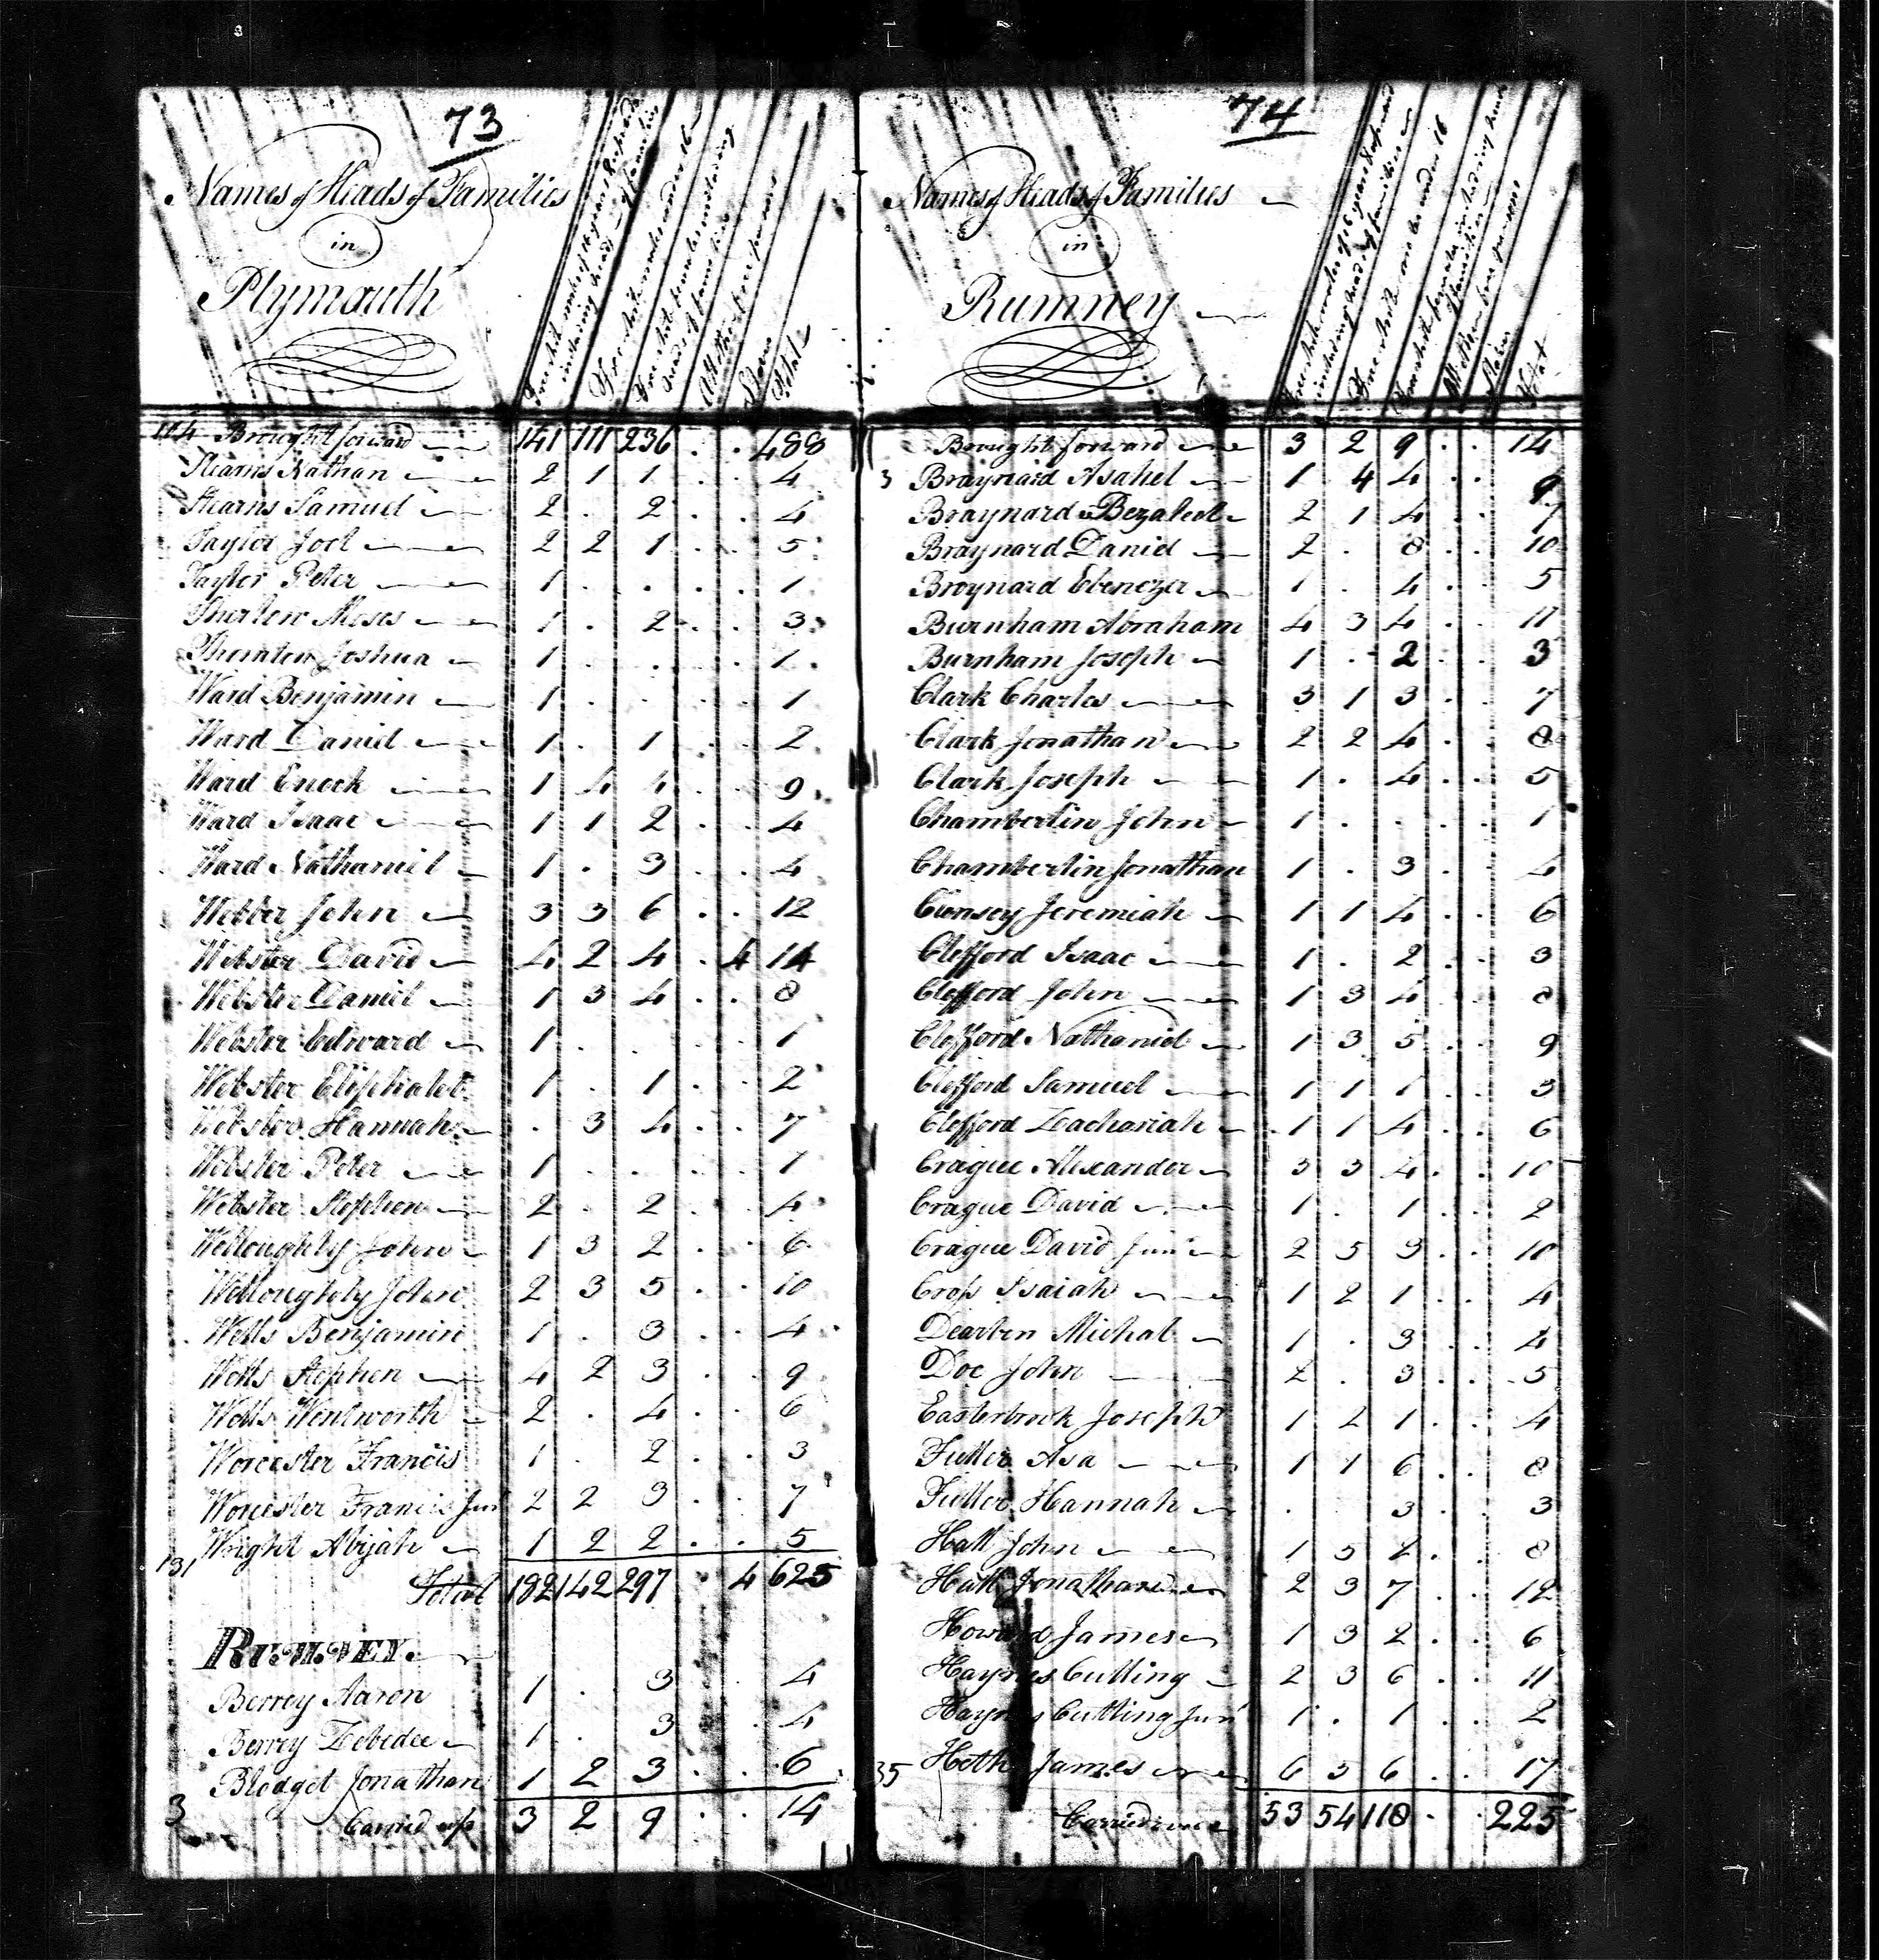 73
Names of Heads of Families
in
Plymouth
Free white males of 16 years & upwards including heads of families
Free white males under 16
Free white females including heads of families
All other free persons
Slaves
Total
104 Brought forward 141 111 236 . . 488
Stearns Nathan 2 1 1 . . 4
Stearns Samuel 2 . 2 . . 4
Taylor Joel 2 2 1 . . 5
Taylor Peter 1 . . . . 1
Thurlow Moses 1 . 2 . . 3
Thornton Joshua 1 . . . . 1
Ward Benjamin 1 . . . . 1
Ward Daniel 1 . 1 . . 2
Ward Enoch 1 4 4 . . 9
Ward Isaac 1 1 2 . . 4
Ward Nathaniel 1 . 3 . . 4
Webber John 3 3 6 . . 12
Webster David 4 2 4 . 4 14
Webster Daniel 1 3 4 . . 8
Webster Edward 1 . . . . 1
Webster Eliphalet 1 . 1 . . 2
Webster Hannah . 3 4 . . 7
Webster Peter 1 . . . . 1
Webster Stephen 2 . 2 . . 4
Welloughby John 1 3 2 . . 6
Welloughby John 2 3 5 . . 10
Wells Benjamin 1 . 3 . . 4
Wells Stephen 4 2 3 . . 9
Wells Wentworth 2 . 4 . . 6
Worcester Francis 1 . 2 . . 3
Worcester Francis Jun 2 2 3 . . 7
131 Wright Abijah 1 2 2 . . 5
Total 182 142 297 4 625
RUMNEY.
Berrey Aaron 1 . 3 . . 4
Berrey Zebedee 1 . 3 . . 4
Blodget Jonathan 1 2 3 . . 6
3 Carried up 3 2 9 . . 14
74
Names of Heads of Families
in
Rumney
Free white males of 16 years & upward including heads of families
Free white males under 16
Free white females including heads of families
All other free persons
Slaves
Total
Brought forward 3 2 9 . . 14
3 Braynard Asahel 1 4 4 . . 9
Braynard Bezaleel 2 1 4 . . 7
Braynard Daniel 2 . 8 . . 10
Braynard Ebenezer 1 . 4 . . 5
Burnham Abraham 4 3 4 . . 11
Burnham Joseph 1 . 2 . . 3
Clark Charles 3 1 3 . . 7
Clark Jonathan 2 2 4 . . 8
Clark Joseph 1 . 4 . . 5
Chamberlin John 1 . . . . 1
Chamberlin Jonathan 1 . 3 . . 4
Jeremiah 1 1 4 . . 6
Clefford Isaac 1 . 2 . . 3
Clefford John 1 3 4 . . 8
Clefford Nathaniel 1 3 5 . . 9
Clefford Samuel 1 1 1 . . 3
Clefford Zachariah 1 1 4 . . 6
Crague Alexander 3 3 4 . . 10
Crague David 1 . 1 . . 2
Crague David Junr 2 5 3 . . 10
Cross Isaiah 1 2 1 . . 4
Dearbon Michal 1 . 3 . . 4
Doe John 2 . 3 . . 5
Easterbrook Joseph 1 2 1 . . 4
Fuller Asa 1 1 6 . . 8
Fuller Hannah . . 3 . . 3
Hall John 1 5 2 . . 8
Hall Jonathan 2 3 7 . . 12
Howard James 1 3 2 . . 6
Haynes Cutting 2 3 6 . . 11
Haynes Cutting Junr 1 . 1 . . 2
35 James 6 5 6 . . 17
Carried over 53 54 118 . . 225